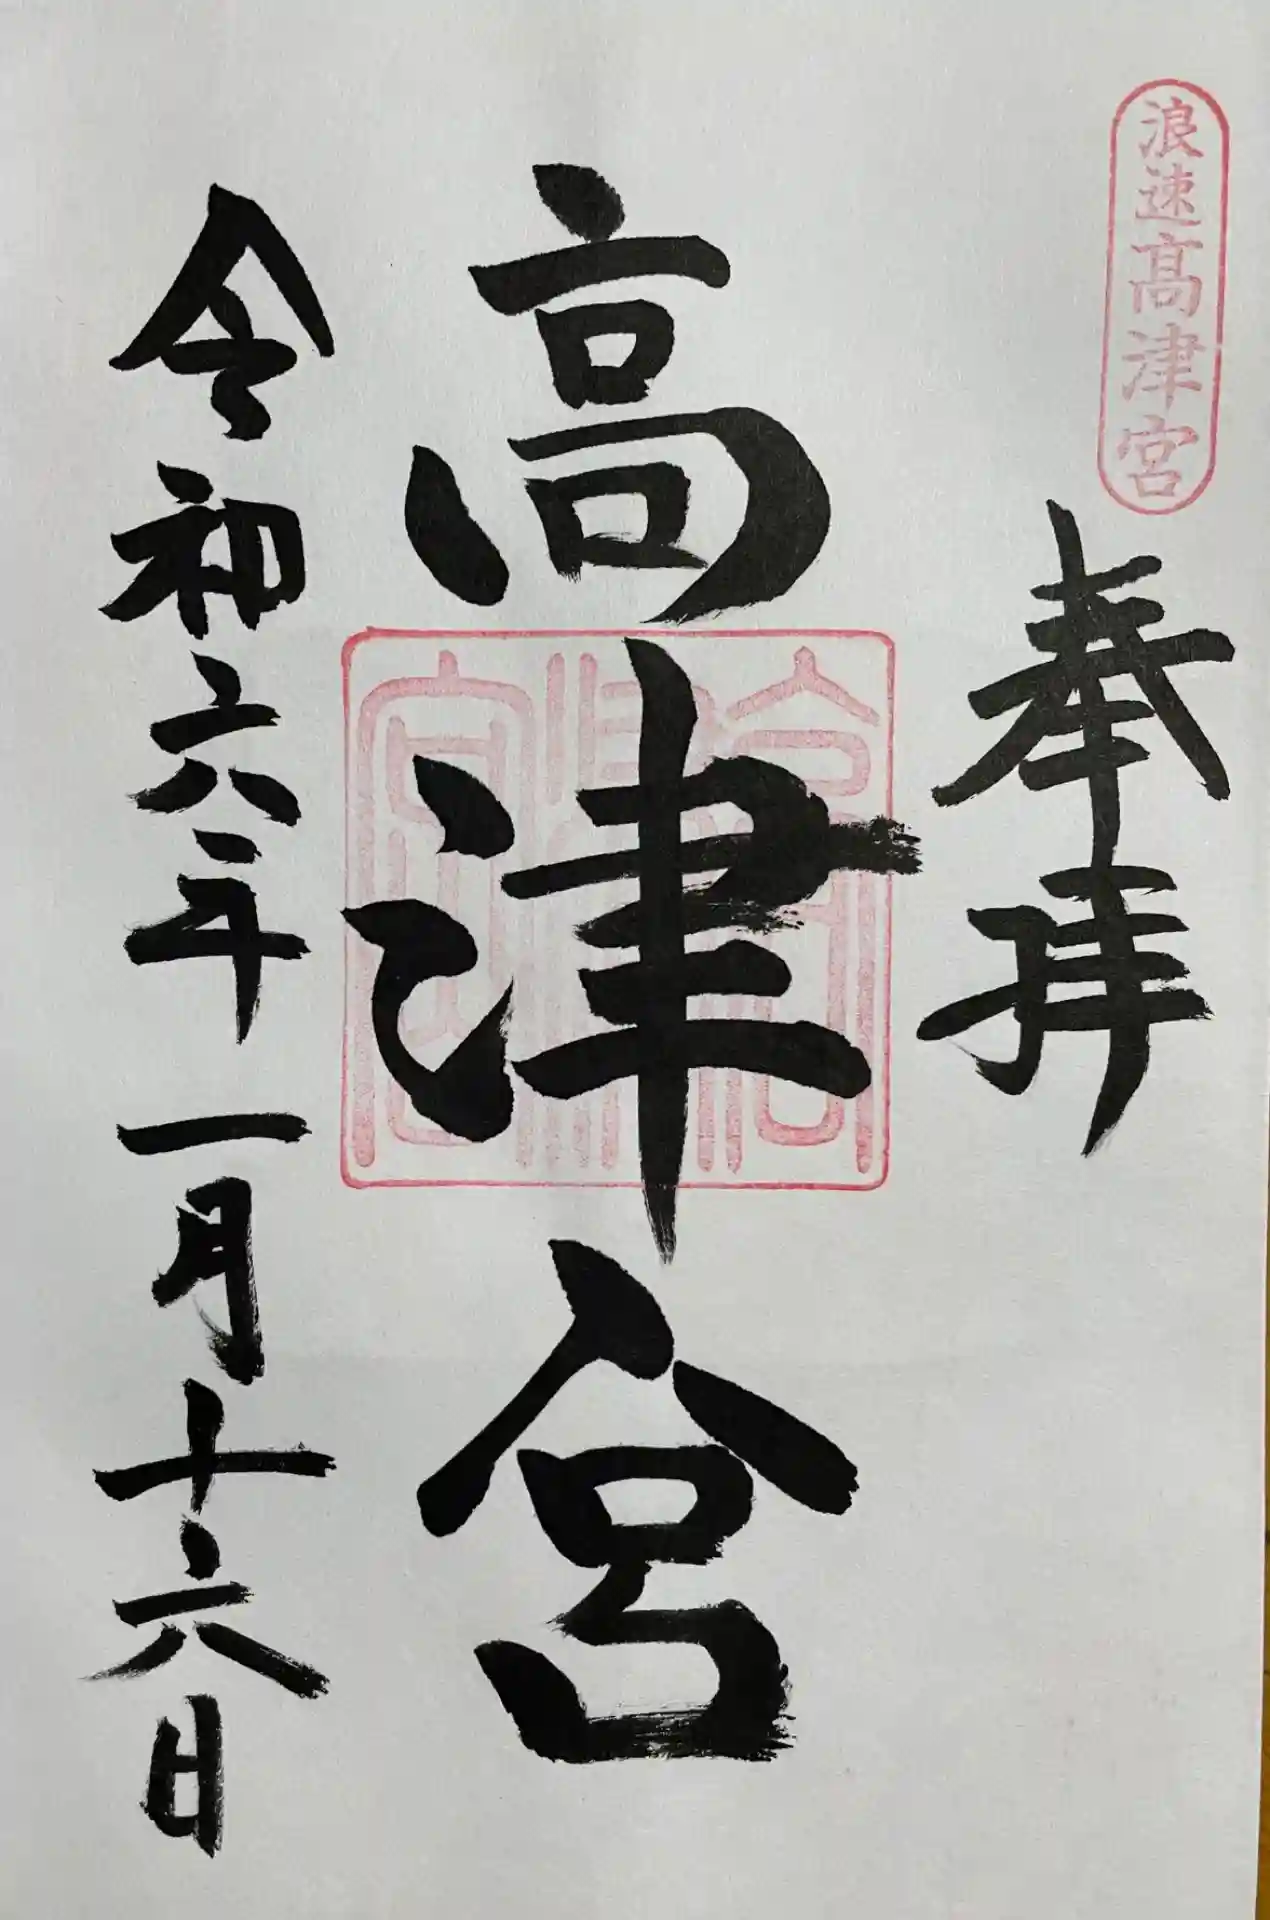 浪速高津宮
奉拝
高津宮
高津宮
令和六年一月十六日